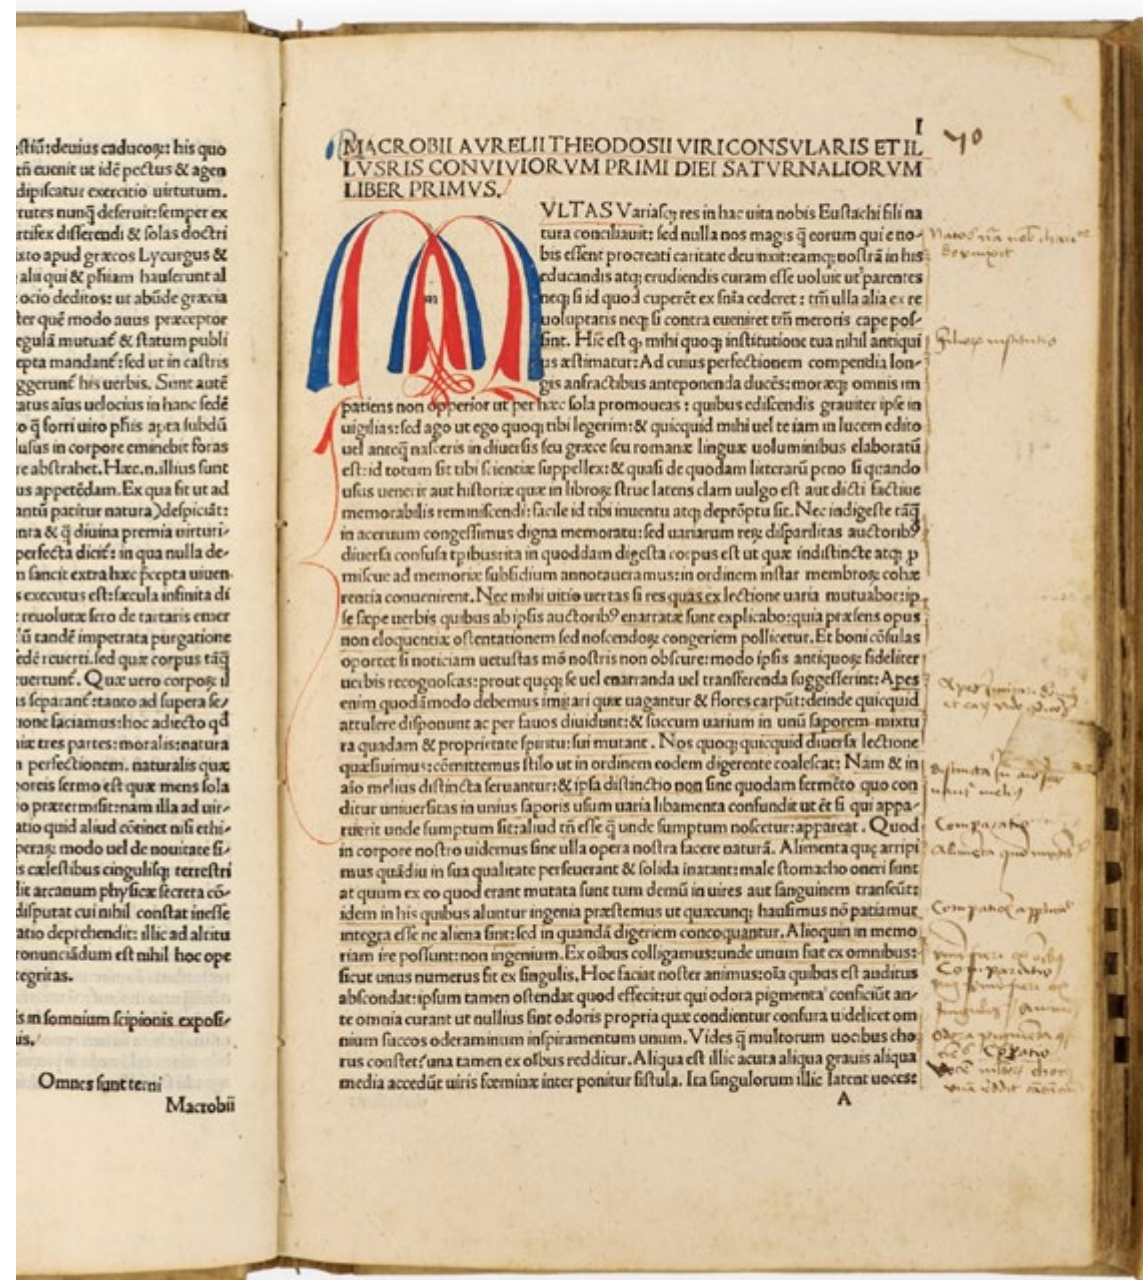 stiū:deuius caducoꝝ: his quo
tñ euenit ut idē pectus & agen
dipiscatur exercitio uirtutum.
tutes nunq̄ deseruit: semper ex
rtifex disserendi & solas doctri
xto apud græcos Lycurgus &
alii qui & pħiam hauserunt al
ocio deditos: ut abūde græcia
ter quē modo auus præceptor
egulā & statum publi
epta mandant: sed ut in castris
ggerunt his uerbis. Sunt autē
atus aīus uelocius in hanc sedē
o q̄ forti uiro pħis apta subdū
lusus in corpore eminebit foras
re abstrahet. Hæc.n.illius sunt
us appetēdam. Ex qua fit ut ad
antū patitur natura)despiciāt:
nra & q̄ diuina premia uirturi-
perfecta dicit: in qua nulla de-
n sancit extra hæc p̄cepta uiuen-
s executus est: sæcula infinita di
reuolutæ sero de tartaris emer
ū tandē impetrata purgatione
edē reuerti. sed quæ corpus tāq̄
uertunt. Quæ uero corpoꝝ il
is separant: tanto ad supera se/
ione faciamus: hoc adiecto qd
iæ tres partes: moralis: natura
n perfectionem. naturalis quæ
poreis sermo est quæ mens sola
o prætermisit: nam illa ad uir-
atio quid aliud cōtinet nisi ethi-
peras: modo uel de nouitate si-
is cælestibus cingulisq; terrestri
lit arcanum physicæ secreta cō-
disputat cui nihil constat inesse
atio deprehendit: illic ad altitu
ronunciādum est nihil hoc ope
tegritas.
is in somnium scipionis exposi-
is.
Omnes sunt terni
Macrobii
I
70
MACROBII AVRELII THEODOSII VIRI CONSVLARIS ET IL
LVSRIS CONVIVIORVM PRIMI DIEI SATVRNALIORVM
LIBER PRIMVS.
M VLTAS Variasq; res in hac uita nobis Eustachi fili na
tura conciliauit: sed nulla nos magis q̄ eorum qui e no-
bis essent procreati caritate deuinxit: eamq; nostrā in his
educandis atq; erudiendis curam esse uoluit ut parentes
neq; si id quod cuperēt ex snīa cederet: tm̄ ulla alia ex re
uoluptatis neq; si contra eueniret tm̄ meroris cape pos-
sint. Hic est q, mihi quoq; institutione tua nihil antiqui
us æstimatur: Ad cuius perfectionem compendia lon-
gis anfractibus anteponenda ducēs: moræq; omnis im
patiens non opperior ut per hæc sola promoueas: quibus ediscendis grauiter ipse in
uigilias: sed ago ut ego quoq; tibi legerim: & quicquid mihi uel te iam in lucem edito
uel anteq̄ nasceris in diuersis seu græce seu romanæ linguæ uoluminibus elaboratū
est: id totum sit tibi scientiæ suppellex: & quasi de quodam litterarū peno si quando
usus uenerit aut historiæ quæ in libroꝝ strue latens clam uulgo est aut dicti factiue
memorabilis reminiscendi: facile id tibi inuentu atq; deprōptu sit. Nec indigeste tāq̄
in aceruum congessimus digna memoratu: sed uariarum reꝝ disparilitas auctoribꝰ
diuersa confusa tpibus: ita in quoddam digesta corpus est ut quæ indistincte atq; p
miscue ad memoriæ subsidium annotaueramus: in ordinem instar membroꝝ cohæ
rentia conuenirent. Nec mihi uitio uertas si res quas ex lectione uaria mutuabor: ip
se sæpe uerbis quibus ab ipsis auctoribꝰ enarratæ sunt explicabo: quia præsens opus
non eloquentiæ ostentationem sed noscendoꝝ congeriem pollicetur. Et boni cōsulas
oportet si noticiam uetustas mō nostris non obscure: modo ipsis antiquoꝝ fideliter
uerbis recognoscas: prout quęq; se uel enarranda uel transferenda suggesserint: Apes
enim quodāmodo debemus imitari quæ uagantur & flores carpūt: deinde quicquid
attulere disponunt ac per fauos diuidunt: & succum uarium in unū saporem mixtu
ra quadam & proprietate spiritu: sui mutant. Nos quoq; quicquid diuersa lectione
quæsiuimus: cōmittemus stilo ut in ordinem eodem digerente coalescat: Nam & in
aīo melius distincta seruantur: & ipsa distinctio non sine quodam fermēto quo con
ditur uniuersitas in unius saporis usum uaria libamenta confundit ut ēt si qui appa-
ruerit unde sumptum sit: aliud tñ esse q̄ unde sumptum noscetur: appareat. Quod
in corpore nostro uidemus sine ulla opera nostra facere naturā. Alimenta quę arripi
mus quādiu in sua qualitate perseuerant & solida inatant: male stomacho oneri sunt
at quum ex eo quod erant mutata sunt tum demū in uires aut sanguinem transeūt:
idem in his quibus aluntur ingenia præstemus ut quæcunq; hausimus nō patiamur
integra esse ne aliena sint: sed in quandā digeriem concoquantur. Alioquin in memo
riam ire possunt: non ingenium. Ex oībus colligamus: unde unum fiat ex omnibus:
sicut unus numerus fit ex singulis. Hoc faciat noster animus: oīa quibus est auditus
abscondat: ipsum tamen ostendat quod effecit: ut qui odora pigmenta conficiūt an-
te omnia curant ut nullius sint odoris propria quæ condientur confura uidelicet om
nium succos oderaminum inspiramentum unum. Vides q̄ multorum uocibus cho
rus constet: una tamen ex oībus redditur. Aliqua est illic acuta aliqua grauis aliqua
media accedūt uiris fœminæ inter ponitur fistula. Ita singulorum illic latent uoces:
A
Comparatio
Comparatio